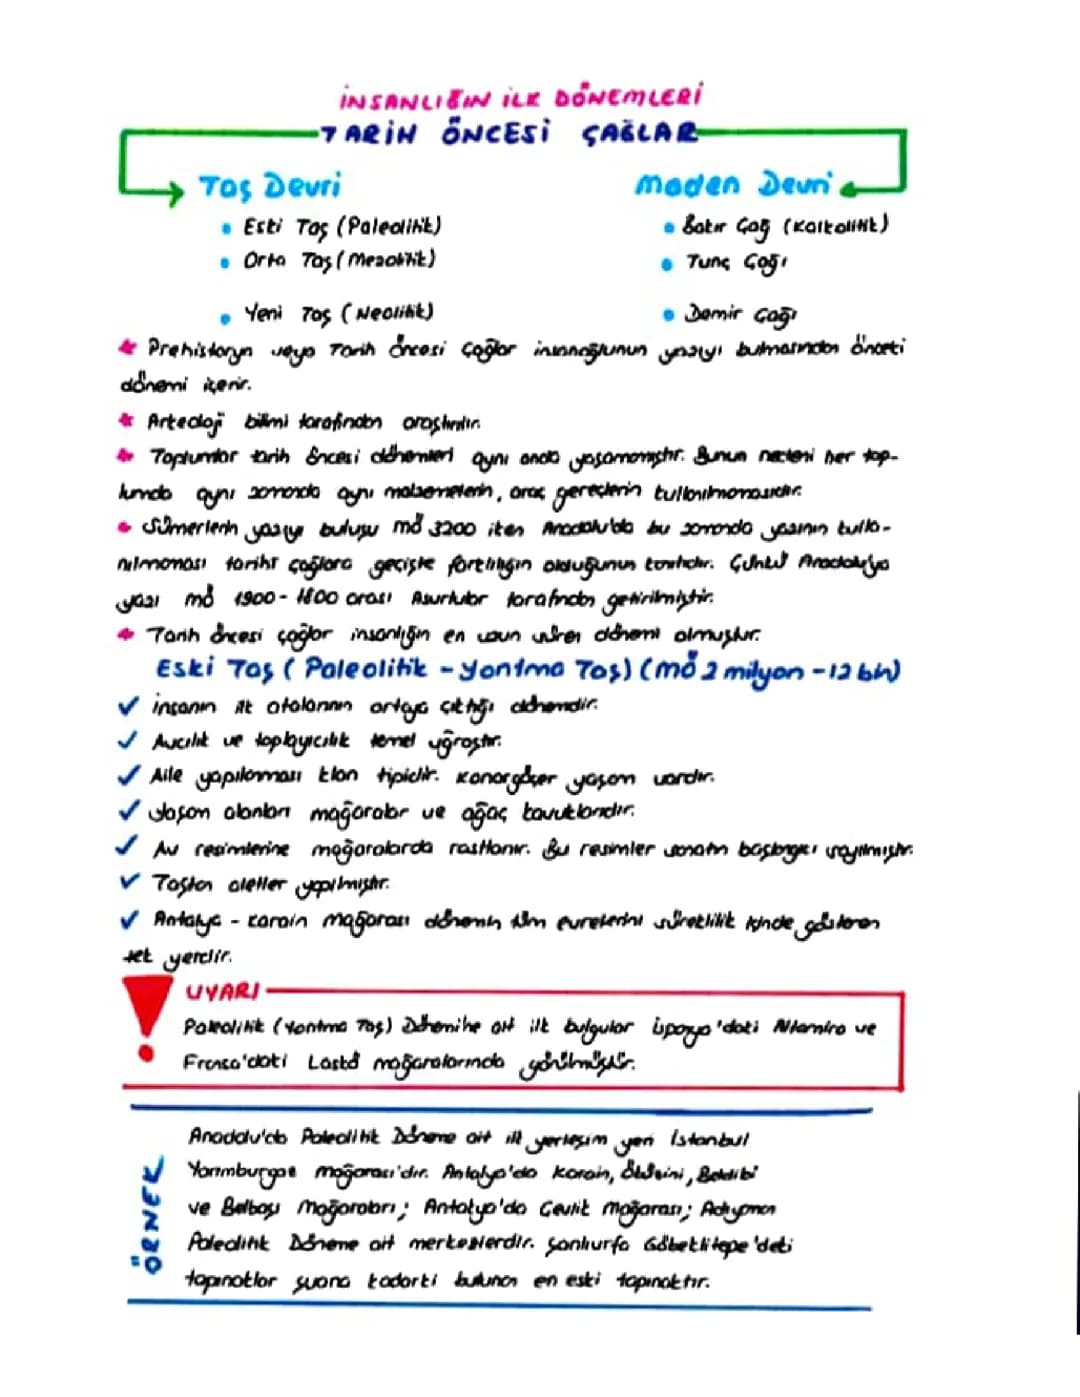 İNSANLIĞIN İLK DÖNEMLERİ
TARİH ÖNCESİ ÇAĞLAR
Taş Devri
Maden Devri
Eski Taş (Paleolitik)
Bakır Çağ (Kalkolitik)
Orta Taş (Mezolitik)
Tunç Çağı
Yeni Taş (Neolitik)
Demir Çağı
Prehistorya veya Tarih öncesi çağlar insanoğlunun yazıyı bulmasından önceki
dönemi içerir.
Arkeoloji bilimi tarafından araştırılır.
Toplumlar tarih öncesi dönemleri aynı anda yaşamamıştır. Bunun nedeni her top-
lumda aynı zamanda aynı malzemelerin, araç gereçlerin kullanılmamasıdır.
Sümerlerin yazıyı buluşu mö 3200 iken Anadolu'da bu zamanda yazının kulla-
nılmaması tarihi çağlara geçişte farklılığın olduğunun kanıtıdır. Çünkü Anadolu'ya
yazı mö 1900-1800 arası Asurlular tarafından getirilmiştir.
Tarih öncesi çağlar insanlığın en uzun süren dönemi olmuştur.
Eski Taş (Paleolitik - Yontma Taş) (mö 2 milyon - 12 bin)
İnsanın ilk atalarının ortaya çıktığı dönemdir.
Avcılık ve toplayıcılık temel uğraştır.
Aile yapılanması klan tipidir. Konargöçer yaşam vardır.
Yaşam alanları mağaralar ve ağaç kavuklarıdır.
Av resimlerine mağaralarda rastlanır. Bu resimler sanatın başlangıcı sayılmıştır.
Taştan aletler yapılmıştır.
Antalya - Karain mağarası dönemin tüm evrelerini süreklilik içinde gösteren
tek yerdir.
UYARI
Paleolitik (Yontma Taş) Dönemine ait ilk bulgular İspanya'daki Altamira ve
Fransa'daki Laskö mağaralarında görülmüştür.
ÖRNEK
Anadolu'da Paleolitik Döneme ait ilk yerleşim yeri İstanbul
Yarımburgaz mağarası'dır. Antalya'da Karain, Öküzini, Beldibi
ve Belbaşı Mağaraları; Antakya'da Cevlik Mağarası; Adıyaman
Paleolitik Döneme ait merkezlerdir. Şanlıurfa Göbeklitepe'deki
tapınaklar şuana kadarki bulunan en eski tapınaktır.